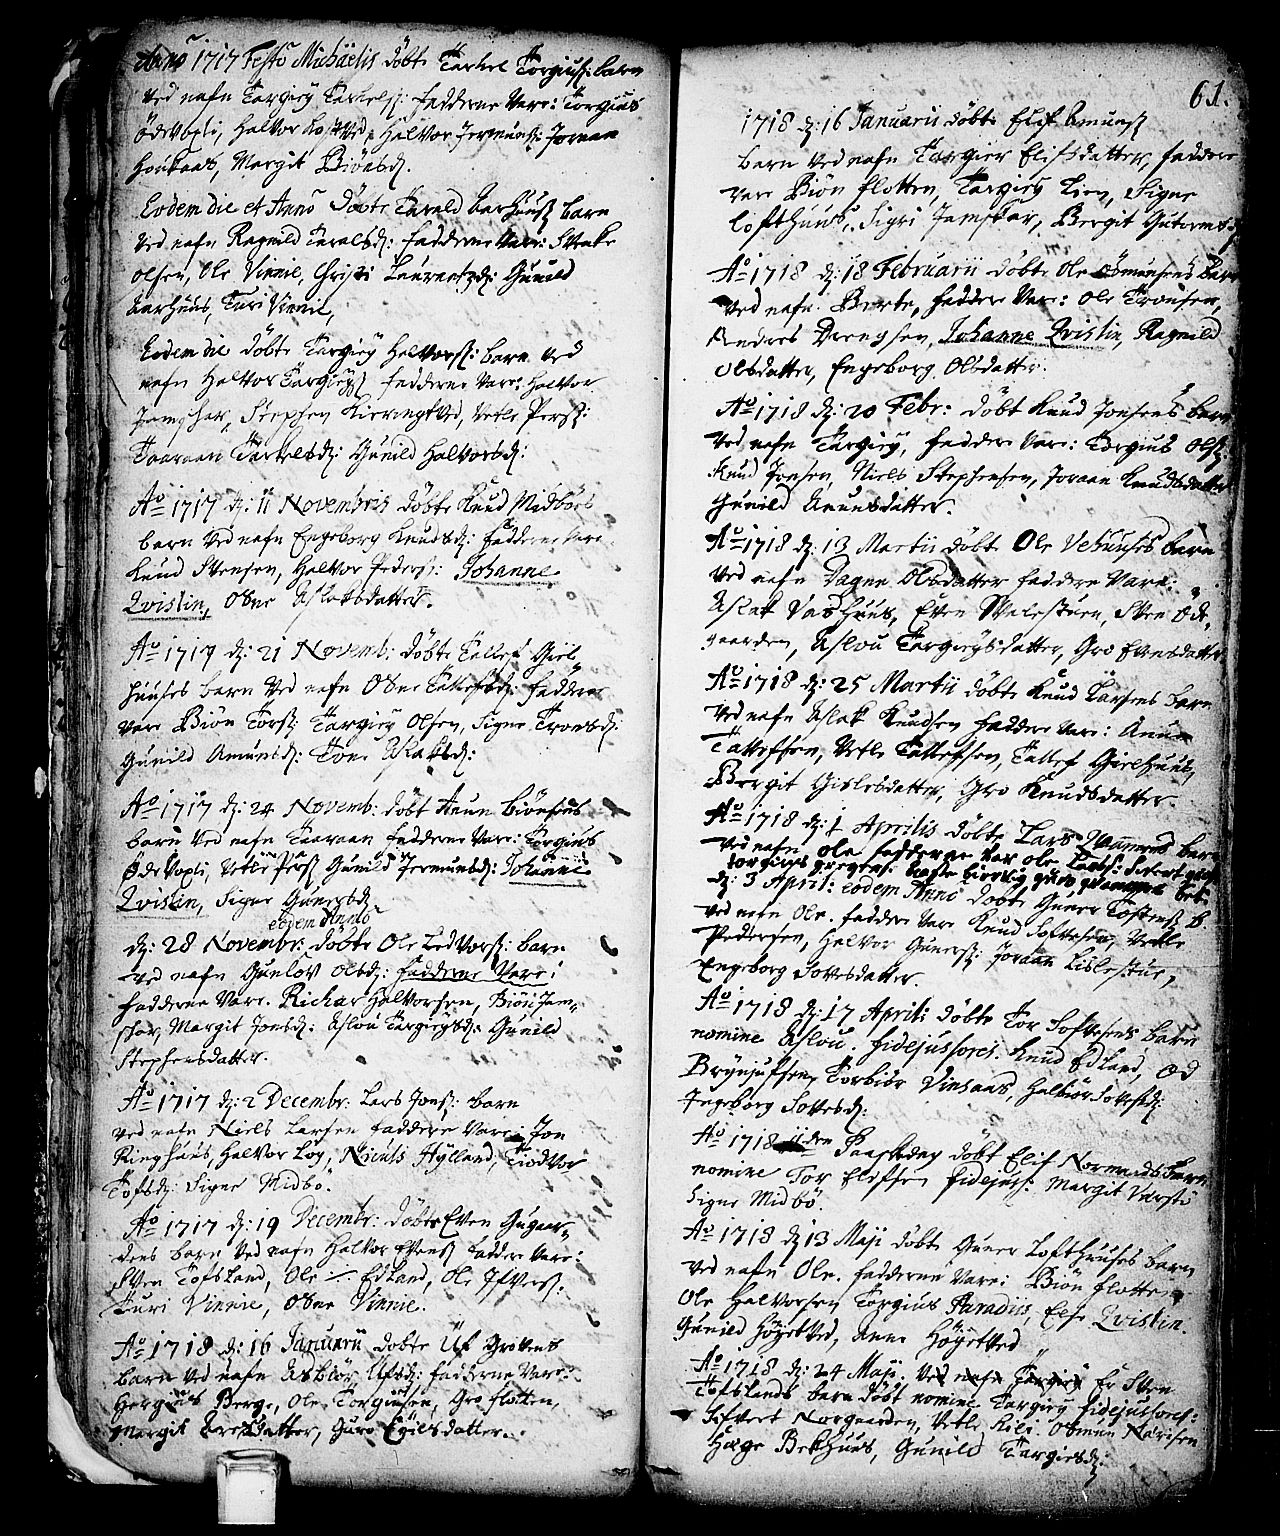 Anno 1717 Festo Michaëlis döbte Tarkel Torgiuss: barn
ved nafn Targiey Tarkelss: fadderne vare: Torgius
Ödevopli, Halvor Kostved, Halvor Jermuns: Joraan
Houkaas, Margit Biönsd.
Eodem die et Anno döbte Tarald Aarhuus barn
ved nafn Ragnild Taralsd: fadderne vare:
Olsen, Ole Vinnie, Christi Lauraetzd: Gunild
Aarhuus, Turi Vinnie,
Eodem die döbte Targiey Halvorss: barn ved
nafn Halvor Targieys fadderne vare: Halvor
Jamshar, Stephen Kieringtved, Vetle Perss:
Taaraan Tarkelsd: Gunild Halvorsd:
Ao 1717 d: 11 Novembris döbte Knud Midböes
barn ved nafn Engeborg Knudsd: fadderne vare
Knud Stensen, Halvor Peders: Johanne
Qvistin, Obne Aslaksdatter.
Ao 1717 d: 21 Novemb: döbte Tallef Giel-
huuses barn ved nafn Obne Tallefsd: faddere
vare Biön Torss: Targiey Olsen, Signe Tronsd:
Gunild Amunsd: Tone Aslaksd:
Ao 1717 d: 24 Novemb: döbt Aanun Biönsens
barn ved nafn Taaraan fadderne vare: Torgius
Ödevopli, Vetle Perss Gunild Jermunsd: Johanne
Qvistin, Signe Gunersd.
eodem Anno
d: 28 Novembr: döbte Ole Ledvorss: barn
ved nafn Gunlov Olsd: fadderne vare:
fadderne vare. Richar Halvorsen, Biön Jam-
shar, Margit Jonsd: Aslou Targieysd: Gunild
Stephensdatter.
Ao 1717 d: 2 Decembr: Lars Jonss: barn
ved nafn Niels Larsen faddere vare: Jon
Ringhuus, Halvor Loy, Niculs Hylland, Tiodvor
Tofsd: Signe Midbö.
Ao 1717 d: 19 Decembr: döbte Even Gugaar-
dens barn ved nafn Halvor Evens faddere vare:
Sven Tofsland, Ole Edland, Ole Ifvers:
Turi Vinnie, Obne Vinnie.
Ao 1718 d: 16 Januarii döbte Ulf Grovens
barn ved nafn Asbiör Ulfsd: fadderne vare:
Hergius Berge, Ole Torgiusen, Gro flotten,
Margit Aresdatter, Guro Egilsdatter.
61.
1718 d: 16 Januarii döbte Elif Amuns
barn ved nafn Targier Elifsdatter, faddere
vare Biön flotten, Targiey Lien, Signe
Lofthuus, Sigri Jamskar, Bergit Gutormsd
Ao 1718 d: 18 Februarii döbte Ole Osmunsens barn
ved nafn Berte, faddere vare: Ole Tronsen,
Andres Drengsen, Johanne Qvistin, Ragnild
Olsdatter, Engeborg Olsdatter.
Ao 1718 d: 20 Febr: döbt Knud Jonsens barn
ved nafn Targiey, faddere vare: Torgius Olss
Knud Jonsen, Niels Stephensen, Joraan Knudsdatter
Gunild Aanunsdatter.
Ao 1718 d: 13 Martii döbte Ole Vehuuses barn
ved nafn Dagne Olsdatter faddere vare.
Aslak Vashuus, Even Walestuen, Sven Öde-
gaarden, Aslou Targieysdatter, Gro Evensdatter
Ao 1718 d: 25 Martii döbte Knud Larsens barn
ved nafn Aslak Knudsen faddere vare: Anun
Tallefsen, Vetle Tallefsen, Tallef Gielhuus,
Bergit Gislesdatter, Gro Knudsdatter.
Ao 1718 d: 1 Aprilis döbte Lars Wammens barn
ved nafn ole fadderne var ole Larss: Sivert
d: 3 April: eodem Anno döbte Guner Tostens B.
ved nafn Ole. faddere vare Knud Softesen, Vetle
Pedersen, Halvor Guners: Joraan Lislestue,
Engeborg Sovesdatter.
Ao 1718 d: 17 April: döbte Tor Softesens barn
nomine Aslou. fidejussores. Knud Edland, Od
Brynjufsen, Torbiör Vinsaas, Halbiör Sovesd:
Ingeborg Sovesd:
Ao 1718 Paaskedag döbt Elif Normandsbarn
nomine Tor Elefsen fidejuss: Margit Varstö
Signe Midbö.
Ao 1718 d: 13 Maji döbte Guner Lofthuuses barn
ved nafn Ole. fadderne vare: Biön flotten
Ole Halvorsen Torgius Paradiis, Else Qvistin.
Gunild Höysetved, Anne Höysetved
Ao 1718 d: 24 Maji. ved nafn Targiey Er Sven
Tofslands barn döbt nomine Targiey fidejussores:
Sifvert Norgaarden, Vetle Kili. Osmun Narisen
Hæge Bekhuus, Gunild Targiesd: